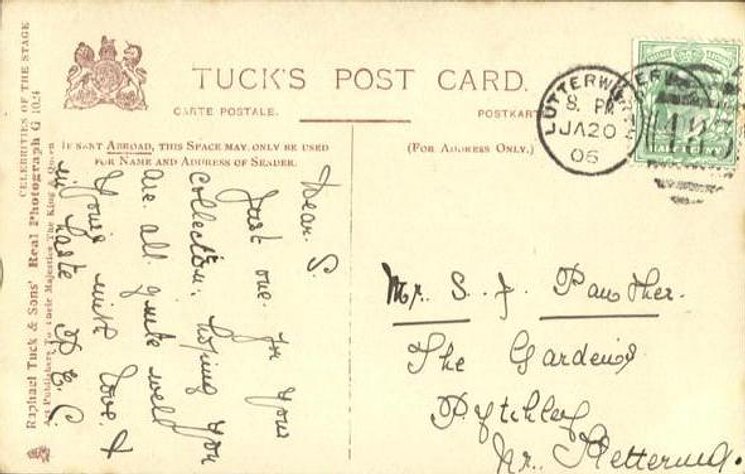 TUCK'S POST CARD.
CARTE POSTALE.
POSTKART
IF SENT ABROAD, THIS SPACE MAY ONLY BE USED
FOR NAME AND ADDRESS OF SENDER.
(FOR ADDRESS ONLY.)
LUTTERWORTH
8. PM
JA20
06
483
HALFPENNY
CELEBRITIES OF THE STAGE
Raphael Tuck & Sons' Real Photograph G 1024
Art Publishers To their Majesties The King & Queen
Dear. S.
Just one for your
collection, hoping you
are all quite well
Yours with love. &
in haste P.E.C.
Mr. S. J. Panther.
The Gardens
Pytchley
Nr. Kettering.